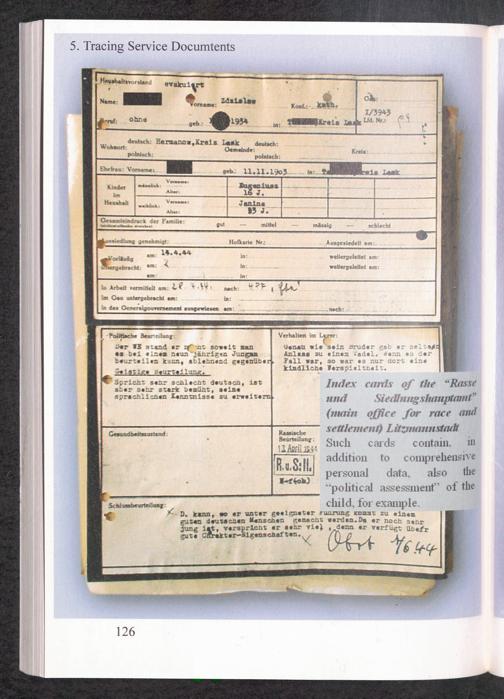 5. Tracing Service Documtents
Haushaltsvorstand evakuiert
Name: Vorname: Zdzislaw Konf.: kath.
Beruf: ohne geb.: 1934 in: Kreis Lask
I/3943
Lfd. Nr.:
Wohnort: deutsch: Hermanow, Kreis Lask deutsch:
polnisch: Gemeinde: polnisch: Kreis:
Ehefrau: Vorname: geb: 11.11.1903 in: Kreis Lask
Kinder im Haushalt
männlich: Vorname: Eugeniusz
Alter: 16 J.
weiblich: Vorname: Janina
Alter: J.
Gesamteindruck der Familie: gut — mittel — mässig — schlecht
Aussiedlung genehmigt: Hofkarte Nr.: Ausgesiedelt am:
Vorläufig am: 18.4.44 in: weitergeleitet am:
untergebracht: am: in: weitergeleitet am:
In Arbeit vermittelt am: nach:
Im Gau untergebracht am: in:
In das Generalgouvernement ausgewiesen am: nach:
Politische Beurteilung:
Der WE stand er soweit man
es bei einem neun jährigen Jungen
beurteilen kann, ablehnend gegenüber.
Geistige Beurteilung.
Spricht sehr schlecht deutsch, ist
aber sehr stark bemüht, seine
sprachlichen Kenntnisse zu erweitern.
Verhalten im Lager:
Genau wie sein Bruder gab er selten
Anlass zu einem Tadel, wenn es der
Fall war, so war es nur dort eine
kindliche Verspieltheit.
Gesundheitszustand:
Rassische
Beurteilung:
13. April 1944
R.u.S.
Schlussbeurteilung:
D. kann, wo er unter geeigneter Führung kommt zu einem
guten deutschen Menschen gemacht werden. Da er noch sehr
jung ist, verspricht er sehr viel, denn er verfügt über
gute Charakter-Eigenschaften.
Index cards of the "Rasse
und Siedlungshauptamt"
(main office for race and
settlement) Litzmannstadt
Such cards contain, in
addition to comprehensive
personal data, also the
"political assessment" of the
child, for example.
126